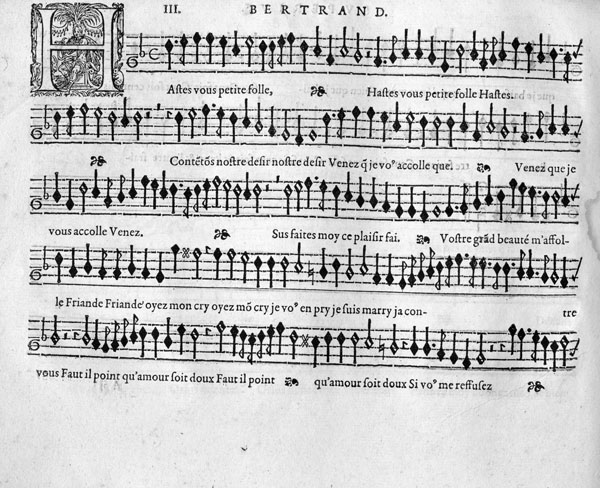 III. BERTRAND.
HAstes vous petite folle, Hastes vous petite folle Hastes.
Contētōs nostre desir nostre desir Venez q̃ je voꝰ accolle que. Venez que je
vous accolle Venez. Sus faites moy ce plaisir fai. Vostre grād beauté m'affol-
le Friande Friande oyez mon cry oyez mō cry je voꝰ en pry je suis marry ja con- tre
vous Faut il point qu'amour soit doux Faut il point qu'amour soit doux Si voꝰ me reffusez